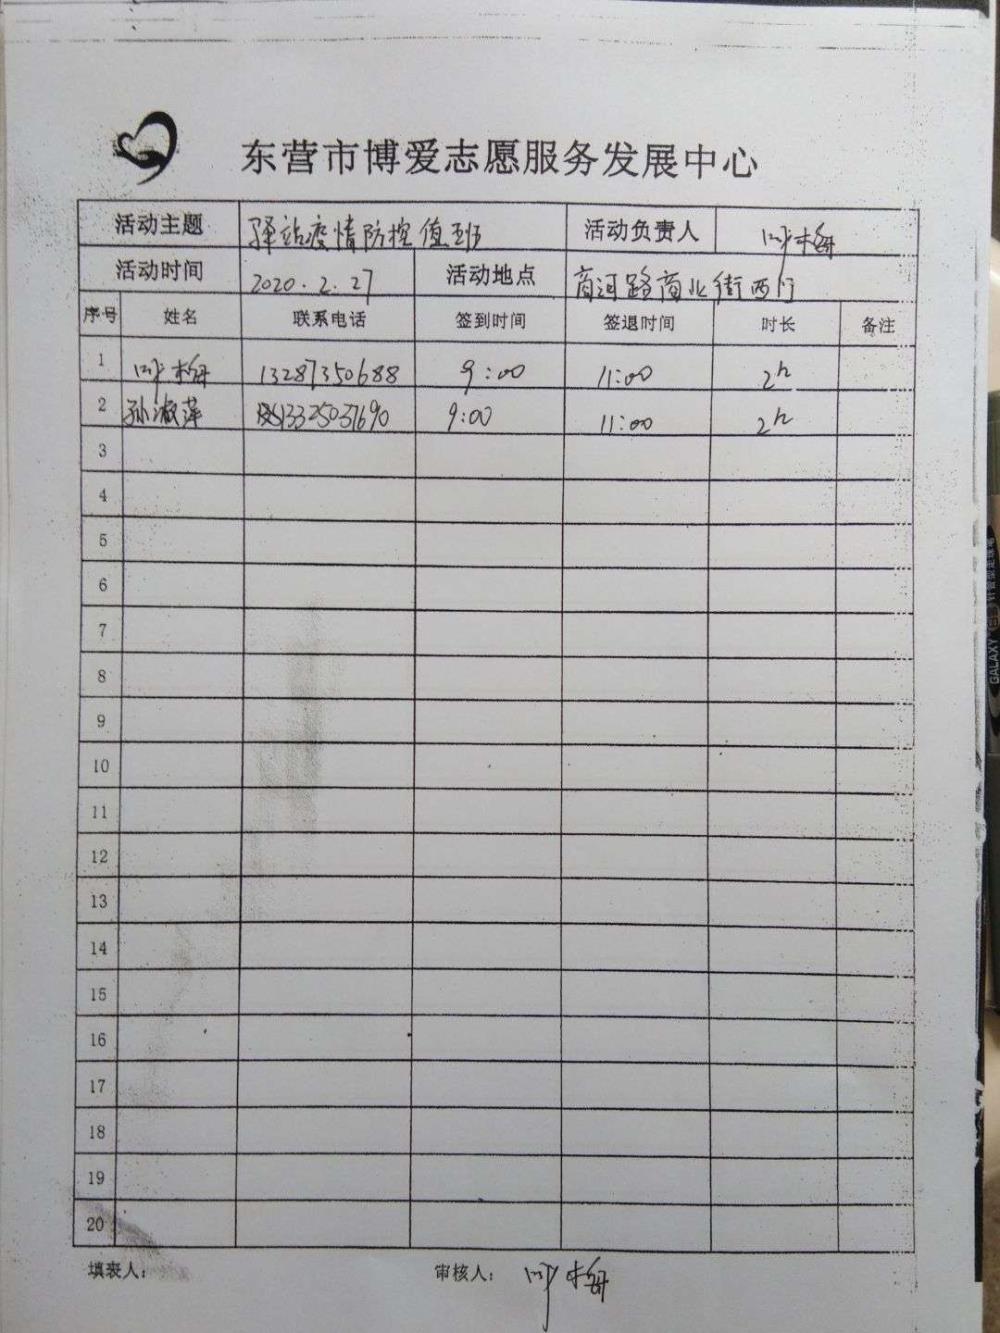 东营市博爱志愿服务发展中心
活动主题 驿站疫情防控值班 活动负责人 叶梅
活动时间 2020.2.27 活动地点 商河路商业街西门
序号 姓名 联系电话 签到时间 签退时间 时长 备注
1 叶梅 13287350688 9:00 11:00 2h
2 孙淑萍 13325037690 9:00 11:00 2h
3
4
5
6
7
8
9
10
11
12
13
14
15
16
17
18
19
20
填表人: 审核人: 叶梅
GALAXY